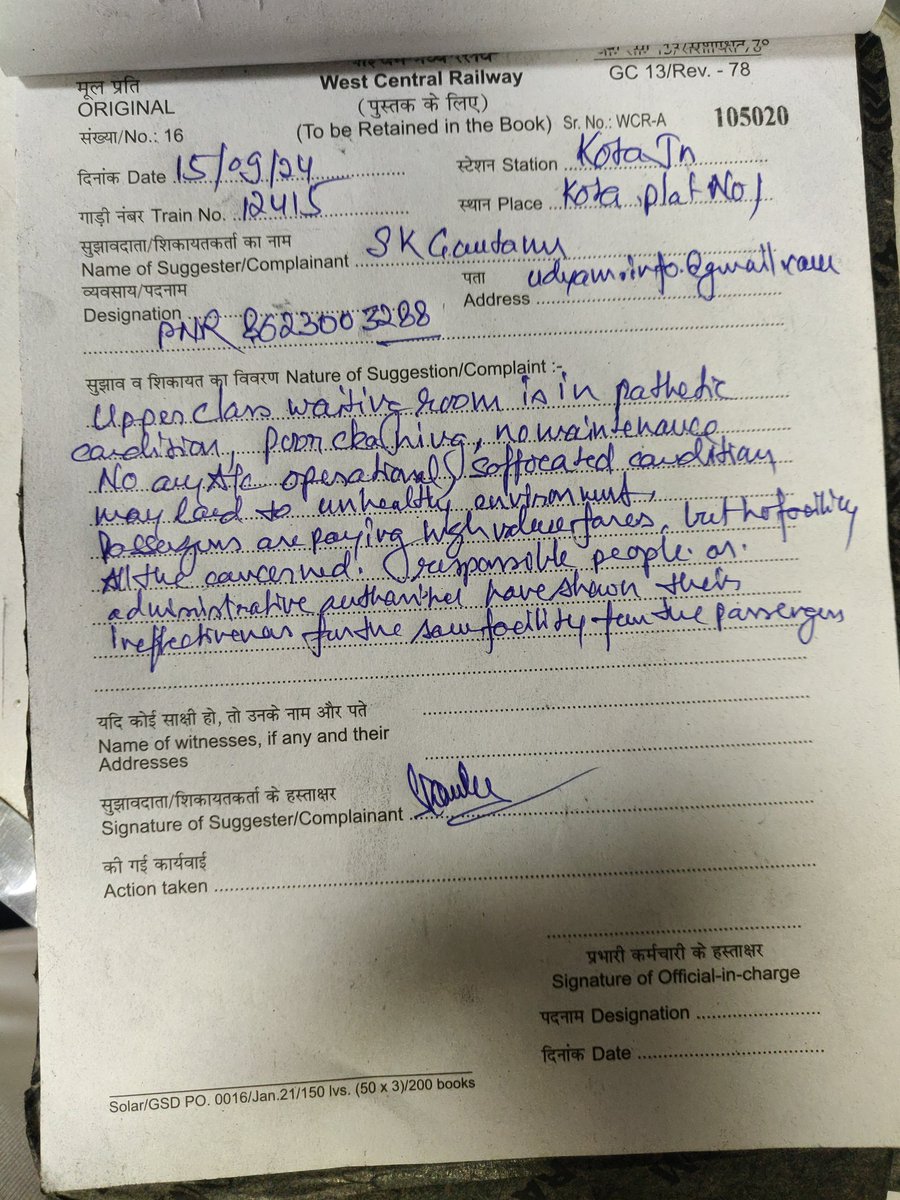 West Central Railway
GC 13/Rev. - 78
मूल प्रति
ORIGINAL
(पुस्तक के लिए)
(To be Retained in the Book) Sr. No.: WCR-A 105020
संख्या/No.: 16
दिनांक Date 15/09/24 स्टेशन Station Kota Jn
गाड़ी नंबर Train No. 12415 स्थान Place Kota plat No 1
सुझावदाता/शिकायतकर्ता का नाम
Name of Suggester/Complainant S K Gautam
व्यवसाय/पदनाम पता
Designation Address udyam.info.@gmail.com
PNR 8623003288
सुझाव व शिकायत का विवरण Nature of Suggestion/Complaint :-
Upper class waitive room is in pathetic
condition, poor , no maintenance
No any A/c operational, soffocated condition
may lead to unhealthy environment,
Passengers are paying high value fares, but no facility
All the concerned. responsible people or
administrative have shown their
ineffectiveness for the facility for the passengers
यदि कोई साक्षी हो, तो उनके नाम और पते
Name of witnesses, if any and their
Addresses
सुझावदाता/शिकायतकर्ता के हस्ताक्षर
Signature of Suggester/Complainant
की गई कार्यवाई
Action taken
प्रभारी कर्मचारी के हस्ताक्षर
Signature of Official-in-charge
पदनाम Designation
दिनांक Date
Solar/GSD PO. 0016/Jan.21/150 lvs. (50 x 3)/200 books